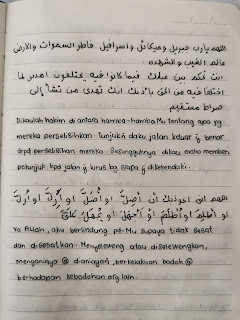 اللهم يارب جبريل وميكائل واسرافيل فاطر السموات والأرض
عالم الغيب والشهده
انت تحكم بين عبادك فيما كانوا فيه يختلفون اهدنى لما
اختلفا فيه من الحق باذنك انك تهدى من تشآ إلى
صراط مستقيم
Dikaulah hakim di antara hamba-hambaMu tentang apa yg
mereka perselisihkan. Tunjukin daku jalan keluar yg benar
drpd perselisihan mereka. Sesungguhnya dikau maha memberi
petunjuk kpd jalan yg lurus bg siapa yg dikehendaki.
اللهم انى اعوذبك أن أضل او أضل او أزل او أزل
او أظلم او أظلم او أجهل او يجهل على
Ya Allah, aku berlindung pd-Mu supaya tidak sesat
dan disesatkan. Menyeleweng atau diselewengkan,
menganiaya @ dianiayai, berkelakuan bodoh @
berhadapan kebodohan org lain.